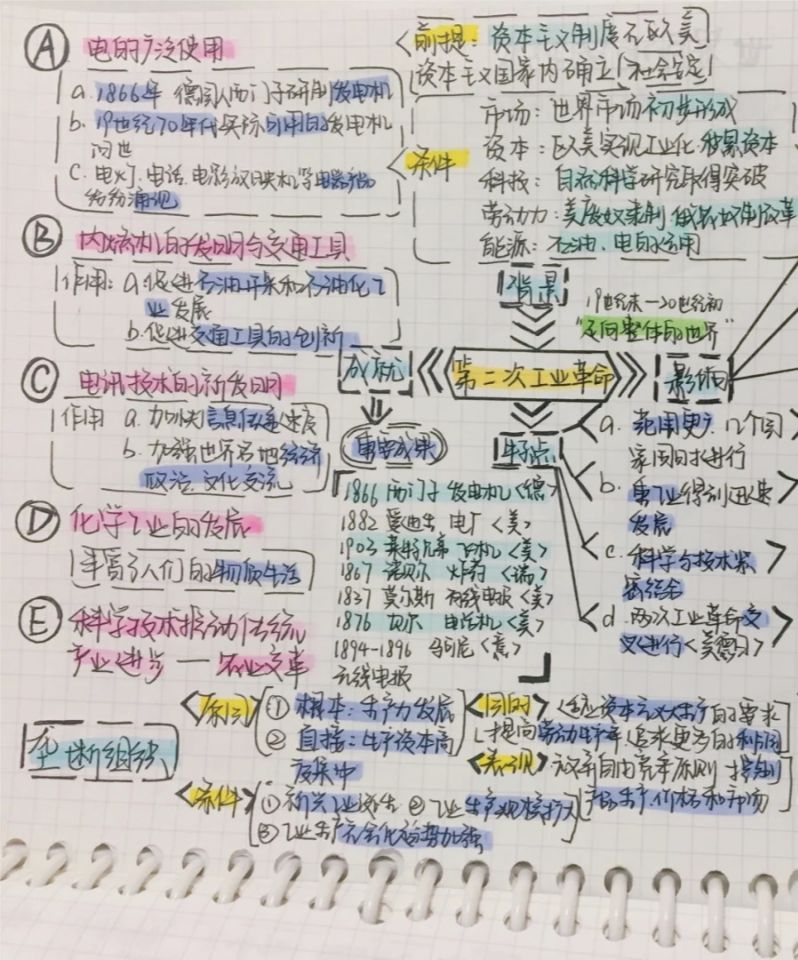 A 电的广泛使用
a.1866年 德国人西门子研制发电机
b.19世纪70年代实际可用的发电机
问世
c.电灯.电话.电影放映机等电器产品
纷纷涌现
B 内燃机的发明与交通工具
作用:a.促进石油开采和石油化工
业发展
b.促进交通工具的创新
C 电讯技术的新发明
作用 a.加快信息传递速度
b.加强世界各地经济
政治.文化交流
D 化学工业的发展
丰富了人们的物质生活
E 科学技术推动传统
产业进步——产业变革
<前提:资本主义制度在欧美
资本主义国家内确立 社会安定
<条件
市场:世界市场初步形成
资本:欧美实现工业化.积累资本
科技:自然科学研究取得突破
劳动力:美废奴隶制 俄农奴制改革
能源:石油、电的运用
背景
19世纪末—20世纪初
"走向整体的世界"
成就 第二次工业革命 影响
重要成果
1866 西门子 发电机<德>
1882 爱迪生 电厂<美>
1903 莱特兄弟 飞机<美>
1867 诺贝尔 炸药<瑞>
1837 莫尔斯 有线电报<美>
1876 贝尔 电话机<美>
1894-1896 马可尼<意>
无线电报
特点
a.范围更广.几个国
家同时进行
b.重工业得到迅速
发展
c.科学与技术紧
密结合
d.两次工业革命交
叉进行<美.德.日>
垄断组织
<原因> ①根本:生产力发展
②直接:生产资本高
度集中
<目的> 适应资本主义大生产的要求
提高劳动生产率.追求更多的利润
<表现> 放弃自由竞争原则 控制
产品生产.价格和市场
<条件> ①新兴工业产生 ②工业生产规模扩大
③工业生产社会化趋势加强